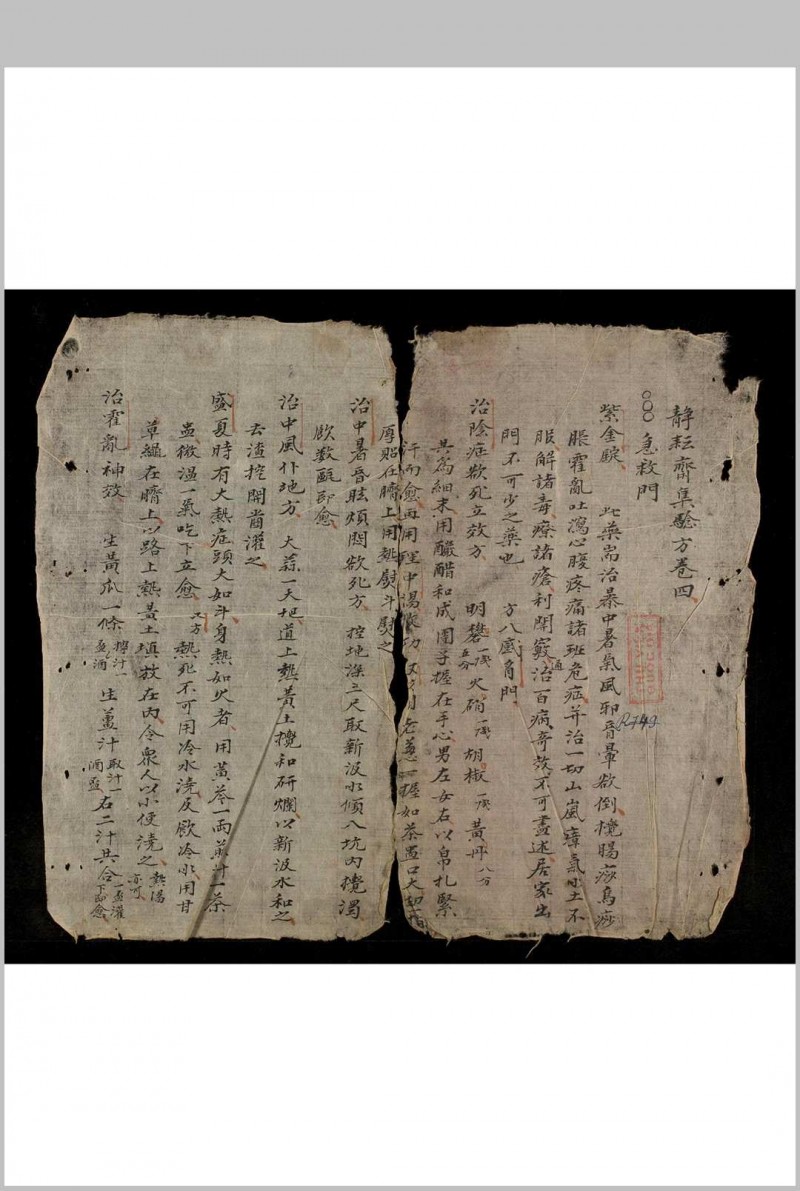 靜耘齋集驗方卷四
急救門
紫金錠 此藥耑治暴中暑氣風邪昏暈欲倒攪腸痧烏痧
脹霍亂吐瀉心腹疼痛諸班危症并治一切山嵐瘴氣水土不
服解諸毒療諸瘡利關竅治百病奇效不可盡述居家出
門不可少之藥也 方八底角門
治陰症欲死立效方 明礬一錢五分 火硝一錢 胡椒一錢 黃丹八分
共為細末用釅醋和成團子握在手心男左女右以帛扎緊
汗而愈再用理中湯 又方用老蔥一握如茶盃口大切
厚貼在臍上用熱熨斗熨之
治中暑昏眩煩悶欲死方 挖地深三尺取新汲水傾入坑內攪濁
飲數甌即愈
治中風仆地方 大蒜一大把道上熱黃土攪和研爛以新汲水和之
去渣挖開齒灌之
盛夏時有大熱症頭大如斗身熱如火者 用黃芩一兩煎汁一茶
盅微溫一氣吃下立愈 又方 熱死不可用冷水澆及飲冷水用甘
草繩在臍上以路上熱黃土填放在內令眾人以小便澆之 熱湯亦可
治霍亂神效 生黃瓜一條搾汁一酒盃 生薑汁取汁一酒盃 右二汁共合一盃灌下即愈
R749